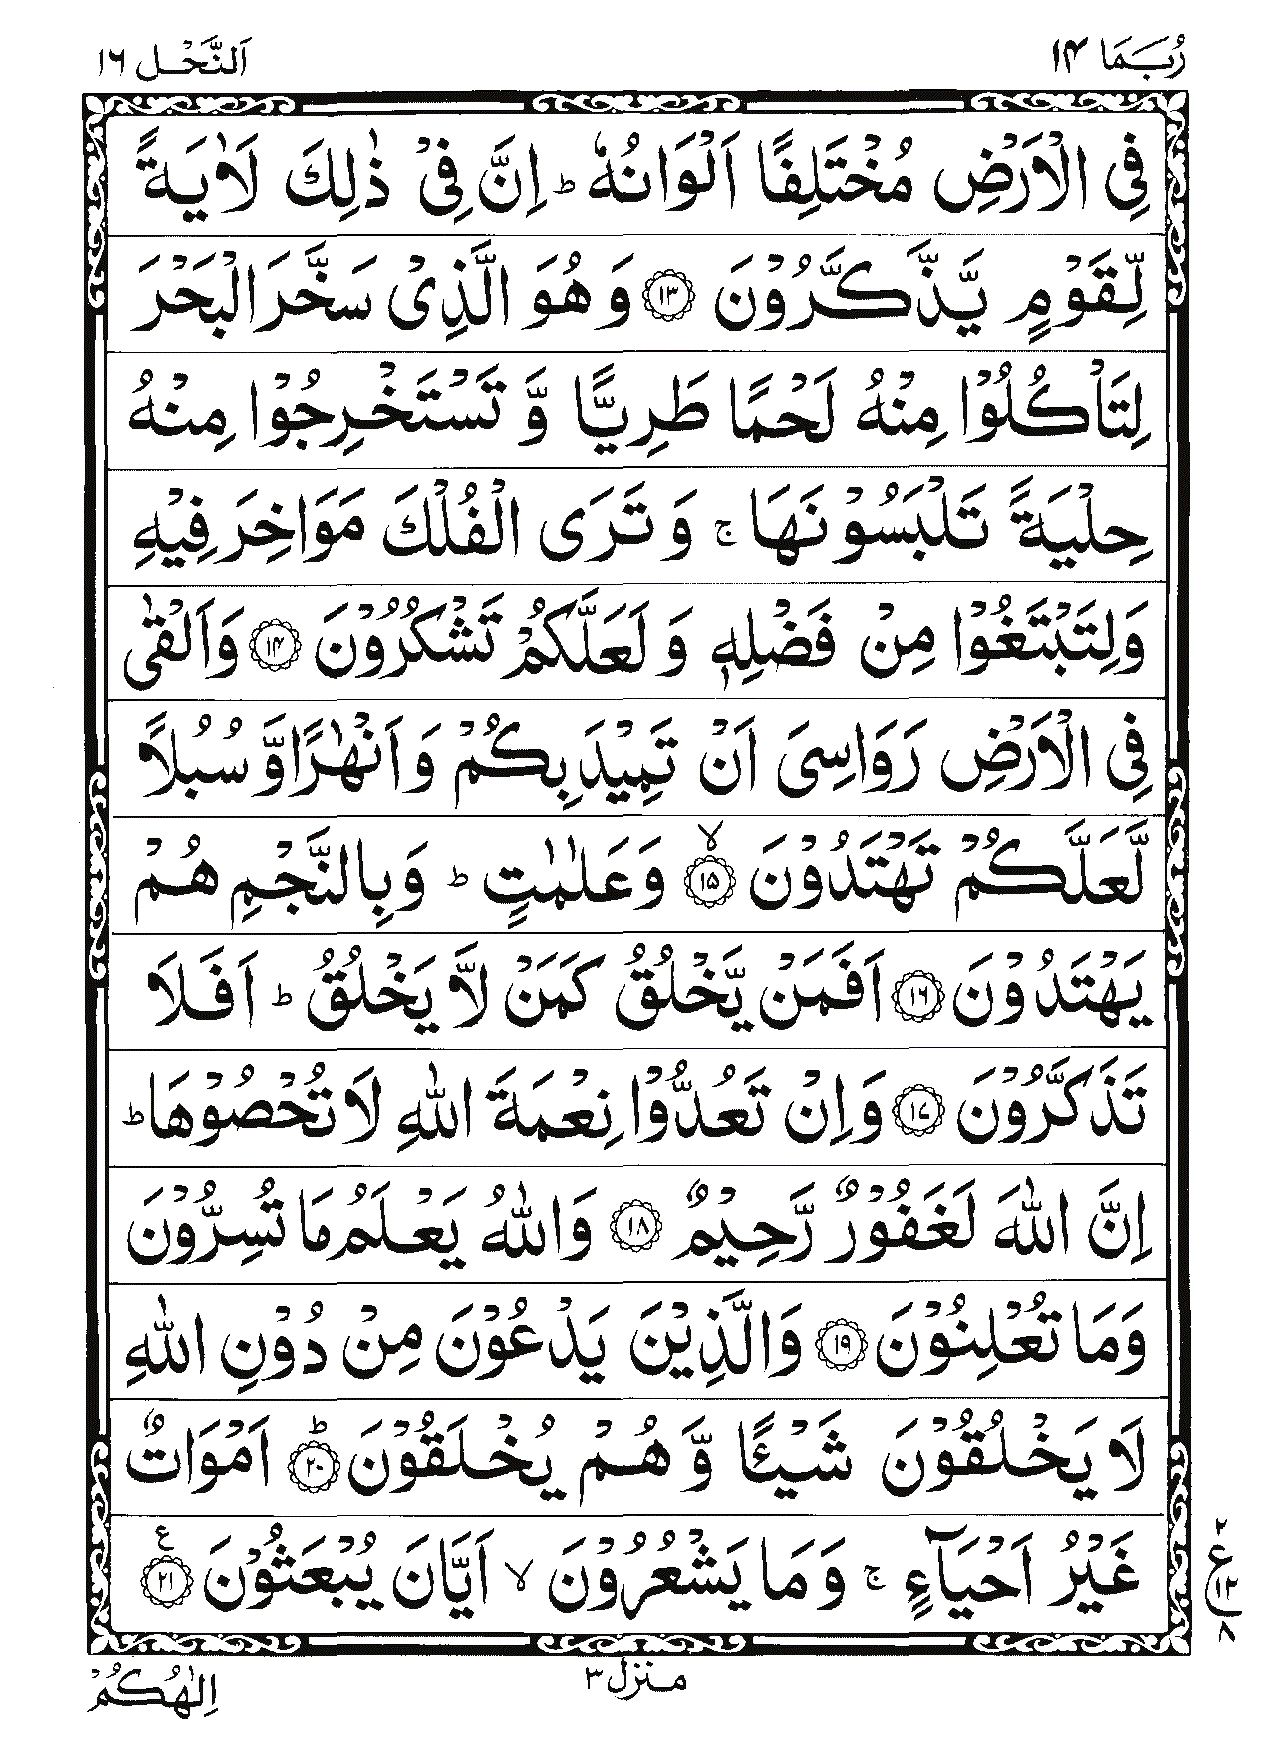 رُبَمَا ١٤
اَلنَّحْل ١٦
فِی الْاَرْضِ مُخْتَلِفًا اَلْوَانُهٗ ؕ اِنَّ فِیْ ذٰلِكَ لَاٰیَةً
لِّقَوْمٍ یَّذَّكَّرُوْنَ ﴿۱۳﴾ وَ هُوَ الَّذِیْ سَخَّرَ الْبَحْرَ
لِتَاْكُلُوْا مِنْهُ لَحْمًا طَرِیًّا وَّ تَسْتَخْرِجُوْا مِنْهُ
حِلْیَةً تَلْبَسُوْنَهَا ۚ وَ تَرَی الْفُلْكَ مَوَاخِرَ فِیْهِ
وَلِتَبْتَغُوْا مِنْ فَضْلِهٖ وَ لَعَلَّكُمْ تَشْكُرُوْنَ ﴿۱۴﴾ وَاَلْقٰی
فِی الْاَرْضِ رَوَاسِیَ اَنْ تَمِیْدَ بِكُمْ وَ اَنْهٰرًا وَّ سُبُلًا
لَّعَلَّكُمْ تَهْتَدُوْنَ ﴿۱۵﴾ۙ وَعَلٰمٰتٍ ؕ وَبِالنَّجْمِ هُمْ
یَهْتَدُوْنَ ﴿۱۶﴾ اَفَمَنْ یَّخْلُقُ كَمَنْ لَّا یَخْلُقُ ؕ اَفَلَا
تَذَكَّرُوْنَ ﴿۱۷﴾ وَاِنْ تَعُدُّوْا نِعْمَةَ اللّٰهِ لَا تُحْصُوْهَا ؕ
اِنَّ اللّٰهَ لَغَفُوْرٌ رَّحِیْمٌ ﴿۱۸﴾ وَاللّٰهُ یَعْلَمُ مَا تُسِرُّوْنَ
وَمَا تُعْلِنُوْنَ ﴿۱۹﴾ وَالَّذِیْنَ یَدْعُوْنَ مِنْ دُوْنِ اللّٰهِ
لَا یَخْلُقُوْنَ شَیْـًٔا وَّ هُمْ یُخْلَقُوْنَ ﴿۲۰﴾ؕ اَمْوَاتٌ
غَیْرُ اَحْیَآءٍ ۚ وَ مَا یَشْعُرُوْنَ ۙ اَیَّانَ یُبْعَثُوْنَ ﴿۲۱﴾ ع
۲
ع
۱۲
۸
منزل ۳
اِلٰهُكُمْ